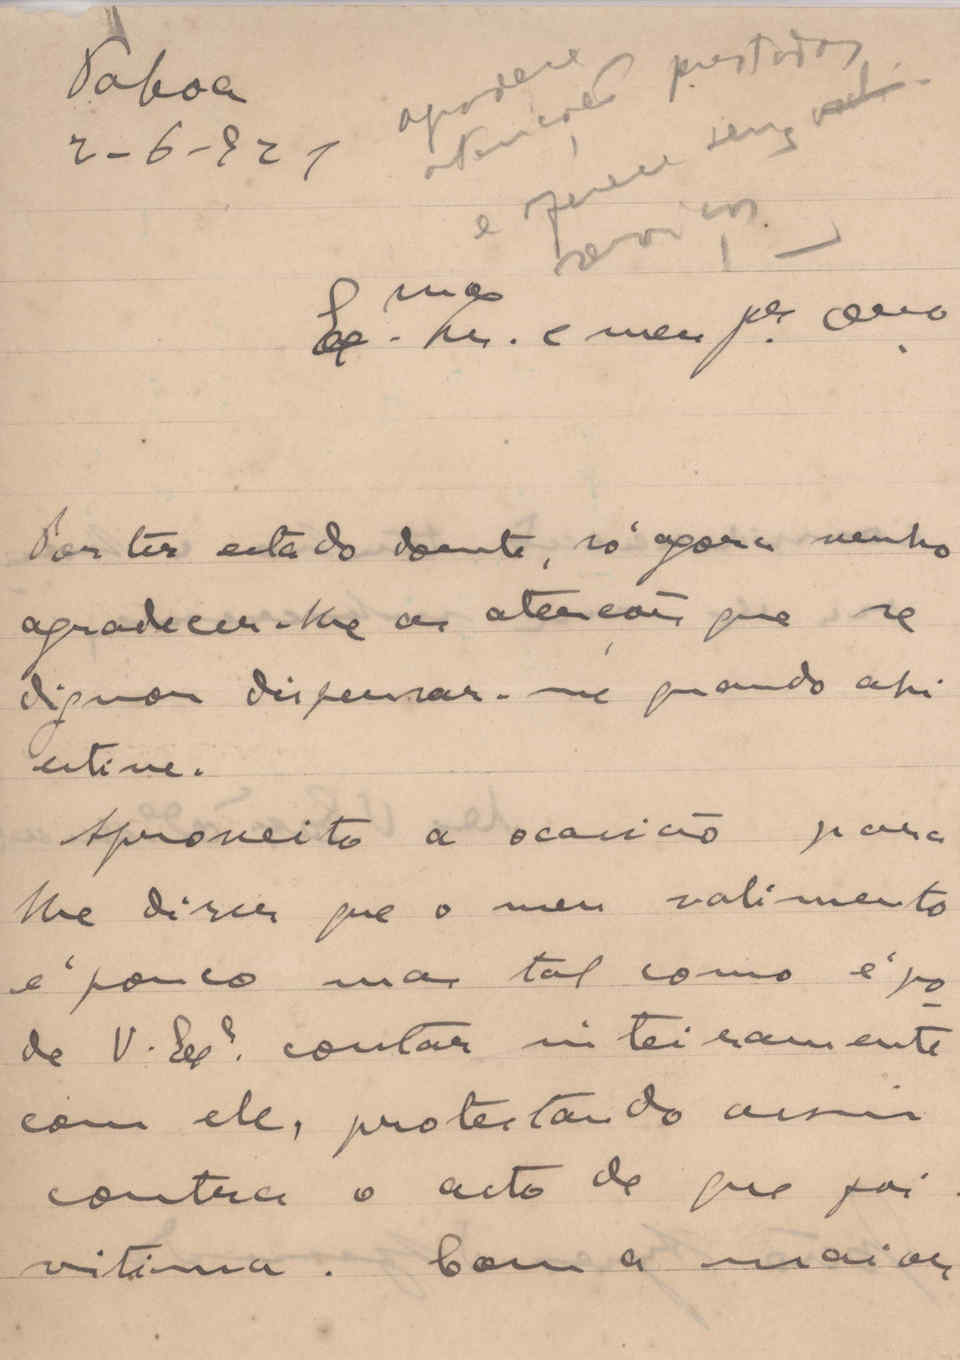 Taboa
2-6-921
agradece
atenções prestadas
e oferece seus
serviços
Exmo Sr. e meu
Por ter estado doente, só agora venho
agradecer-lhe as atenções que se
dignou dispensar-me quando ahi
estive.
Aproveito a ocasião para
lhe diser que o meu valimento
é pouco mas tal como é po
de V. Exª. contar inteiramente
com ele, protestando assim
contra o acto de que foi
vitima. Com a maior